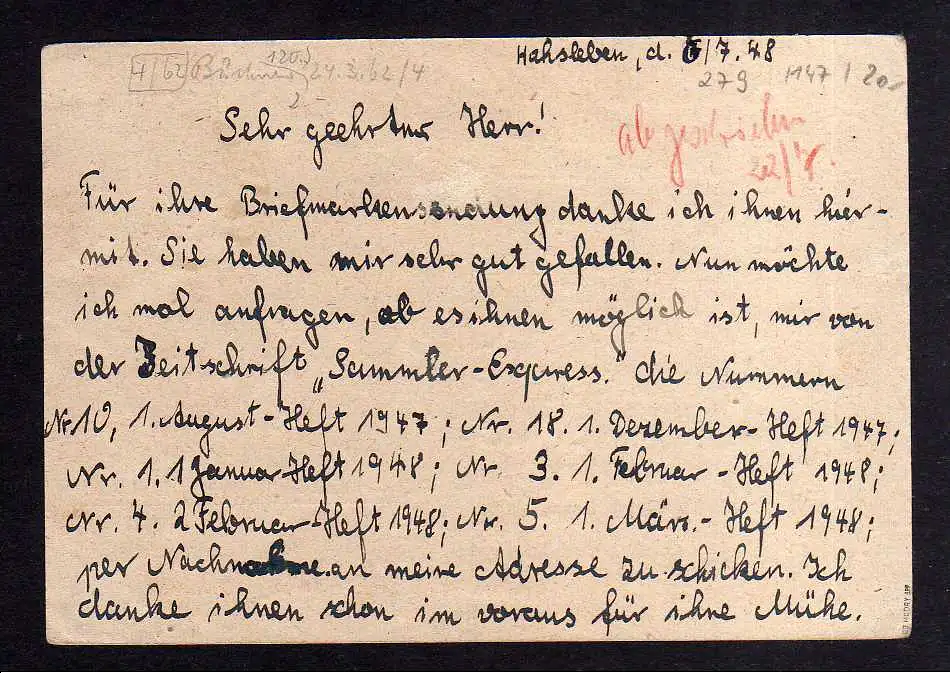 Hahsleben, d. 6/7.48
4/62 Büchner 120.) 24.3.62/4
279 1147 / 20.-
2-
Sehr geehrter Herr!
abgeschrieben
22/7.
Für ihre Briefmarkensendung danke ich ihnen hier-
mit. Sie haben mir sehr gut gefallen. Nun möchte
ich mal anfragen, ob es ihnen möglich ist, mir von
der Zeitschrift „Sammler-Express." die Nummern
Nr 10, 1. August-Heft 1947; Nr. 18. 1. Dezember-Heft 1947;
Nr. 1. 1 Januar-Heft 1948; Nr. 3. 1. Februar-Heft 1948;
Nr. 4. 2 Februar-Heft 1948; Nr. 5. 1. März.-Heft 1948;
per Nachnahme an meine Adresse zu schicken. Ich
danke ihnen schon im voraus für ihne Mühe.